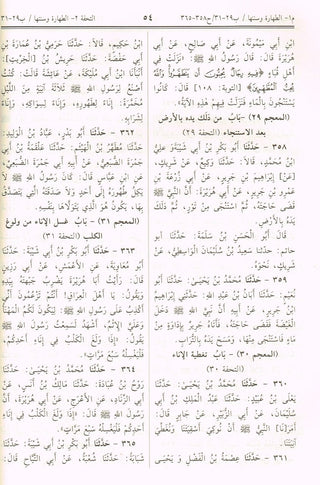 م١- الطهارة وسننها / ب٢٩-٣١/ح٣٥٨-٣٦٥
٥٤
التحفة ٢- الطهارة وسننها / ب٢٩-٣١
ابْنِ أَبِي مَيْمُونَةَ، عَنْ أَبِي صَالِحٍ، عَنْ أَبِي
هُرَيْرَةَ قَالَ: قَالَ رَسُولُ اللهِ ﷺ: «نَزَلَتْ فِي
أَهْلِ قُبَاءَ ﴿فِيهِ رِجَالٌ يُحِبُّونَ أَن يَتَطَهَّرُوا وَاللَّهُ
يُحِبُّ الْمُطَّهِّرِينَ﴾ [التوبة: ١٠٨] قَالَ: كَانُوا
يَسْتَنْجُونَ بِالْمَاءِ فَنَزَلَتْ فِيهِمْ هَذِهِ الْآيَةُ».
(المعجم ٢٩) - بَابُ من دلك يده بالأرض
بعد الاستنجاء (التحفة ٢٩)
٣٥٨ - حَدَّثَنَا أَبُو بَكْرِ بْنُ أَبِي شَيْبَةَ وَعَلِيُّ
ابْنُ مُحَمَّدٍ، قَالَا: حَدَّثَنَا وَكِيعٌ، عَنْ شَرِيكٍ،
[عَنْ] إِبْرَاهِيمَ بْنِ جَرِيرٍ، عَنْ أَبِي زُرْعَةَ بْنِ
عَمْرِو بْنِ جَرِيرٍ، عَنْ أَبِي هُرَيْرَةَ: أَنَّ النَّبِيَّ ﷺ
قَضَى حَاجَتَهُ، ثُمَّ اسْتَنْجَى مِنْ تَوْرٍ، ثُمَّ دَلَكَ
يَدَهُ بِالْأَرْضِ.
قَالَ أَبُو الْحَسَنِ بْنُ سَلَمَةَ: حَدَّثَنَا أَبُو
حَاتِمٍ: حَدَّثَنَا سَعِيدُ بْنُ سُلَيْمَانَ الْوَاسِطِيُّ، عَنْ
شَرِيكٍ، نَحْوَهُ.
٣٥٩ - حَدَّثَنَا مُحَمَّدُ بْنُ يَحْيَىٰ: حَدَّثَنَا أَبُو
نُعَيْمٍ: حَدَّثَنَا أَبَانُ بْنُ عَبْدِ اللهِ: حَدَّثَنِي إِبْرَاهِيمُ
ابْنُ جَرِيرٍ، عَنْ أَبِيهِ أَنَّ نَبِيَّ اللهِ ﷺ دَخَلَ
الْغَيْضَةَ فَقَضَى حَاجَتَهُ، فَأَتَاهُ جَرِيرٌ بِإِدَاوَةٍ مِنْ
مَاءٍ فَاسْتَنْجَى مِنْهَا، وَمَسَحَ يَدَهُ بِالتُّرَابِ.
(المعجم ٣٠) - بَابُ تغطية الإناء
(التحفة ٣٠)
٣٦٠ - حَدَّثَنَا مُحَمَّدُ بْنُ يَحْيَىٰ: حَدَّثَنَا
يَعْلَى بْنُ عُبَيْدٍ: حَدَّثَنَا عَبْدُ الْمَلِكِ بْنُ أَبِي
سُلَيْمَانَ، عَنْ أَبِي الزُّبَيْرِ، عَنْ جَابِرٍ قَالَ:
[أَمَرَنَا] النَّبِيُّ ﷺ أَنْ نُوكِيَ أَسْقِيَتَنَا وَنُغَطِّيَ
آنِيَتَنَا.
٣٦١ - حَدَّثَنَا عِصْمَةُ بْنُ الْفَضْلِ وَ يَحْيَى
ابْنُ حَكِيمٍ، قَالَا: حَدَّثَنَا حَرَمِيُّ بْنُ عُمَارَةَ بْنِ
أَبِي حَفْصَةَ: حَدَّثَنَا حَرِيشُ بْنُ [الْخِرِّيتِ]:
أَنْبَأَنَا ابْنُ أَبِي مُلَيْكَةَ، عَنْ عَائِشَةَ قَالَتْ: كُنْتُ
أَصْنَعُ لِرَسُولِ اللهِ ﷺ ثَلَاثَةَ آنِيَةٍ مِنَ اللَّيْلِ
مُخَمَّرَةً: إِنَاءً لِطَهُورِهِ، وَإِنَاءً لِسِوَاكِهِ، وَإِنَاءً
لِشَرَابِهِ.
٣٦٢ - حَدَّثَنَا أَبُو بَدْرٍ، عَبَّادُ بْنُ الْوَلِيدِ:
حَدَّثَنَا مُطَهَّرُ بْنُ الْهَيْثَمِ: حَدَّثَنَا عَلْقَمَةُ بْنُ أَبِي
جَمْرَةَ الضُّبَعِيُّ، عَنْ أَبِيهِ أَبِي جَمْرَةَ الضُّبَعِيِّ،
عَنِ ابْنِ عَبَّاسٍ قَالَ: كَانَ رَسُولُ اللهِ ﷺ لَا
يَكِلُ طُهُورَهُ إِلَى أَحَدٍ وَلَا صَدَقَتَهُ الَّتِي يَتَصَدَّقُ
بِهَا، يَكُونُ هُوَ الَّذِي يَتَوَلَّاهَا بِنَفْسِهِ.
(المعجم ٣١) - بَابُ غسل الإناء من ولوغ
الكلب (التحفة ٣١)
٣٦٣ - حَدَّثَنَا أَبُو بَكْرِ بْنُ أَبِي شَيْبَةَ: حَدَّثَنَا
أَبُو مُعَاوِيَةَ، عَنِ الْأَعْمَشِ، عَنْ أَبِي رَزِينٍ
قَالَ: رَأَيْتُ أَبَا هُرَيْرَةَ يَضْرِبُ جَبْهَتَهُ بِيَدِهِ
وَيَقُولُ: يَا أَهْلَ الْعِرَاقِ! أَنْتُمْ تَزْعُمُونَ أَنِّي
أَكْذِبُ عَلَى رَسُولِ اللهِ ﷺ لِيَكُونَ لَكُمُ الْمَهْنَأُ
وَعَلَيَّ الْإِثْمُ، أَشْهَدُ لَسَمِعْتُ رَسُولَ اللهِ ﷺ
يَقُولُ: «إِذَا وَلَغَ الْكَلْبُ فِي إِنَاءِ أَحَدِكُمْ،
فَلْيَغْسِلْهُ سَبْعَ مَرَّاتٍ».
٣٦٤ - حَدَّثَنَا مُحَمَّدُ بْنُ يَحْيَىٰ: حَدَّثَنَا
رَوْحُ بْنُ عُبَادَةَ: حَدَّثَنَا مَالِكُ بْنُ أَنَسٍ، عَنْ
أَبِي الزِّنَادِ، عَنِ الْأَعْرَجِ، عَنْ أَبِي هُرَيْرَةَ، أَنَّ
رَسُولَ اللهِ ﷺ قَالَ: «إِذَا وَلَغَ الْكَلْبُ فِي إِنَاءِ
أَحَدِكُمْ فَلْيَغْسِلْهُ سَبْعَ مَرَّاتٍ».
٣٦٥ - حَدَّثَنَا أَبُو بَكْرِ بْنُ أَبِي شَيْبَةَ: حَدَّثَنَا
شَبَابَةُ: حَدَّثَنَا شُعْبَةُ، عَنْ أَبِي التَّيَّاحِ قَالَ: